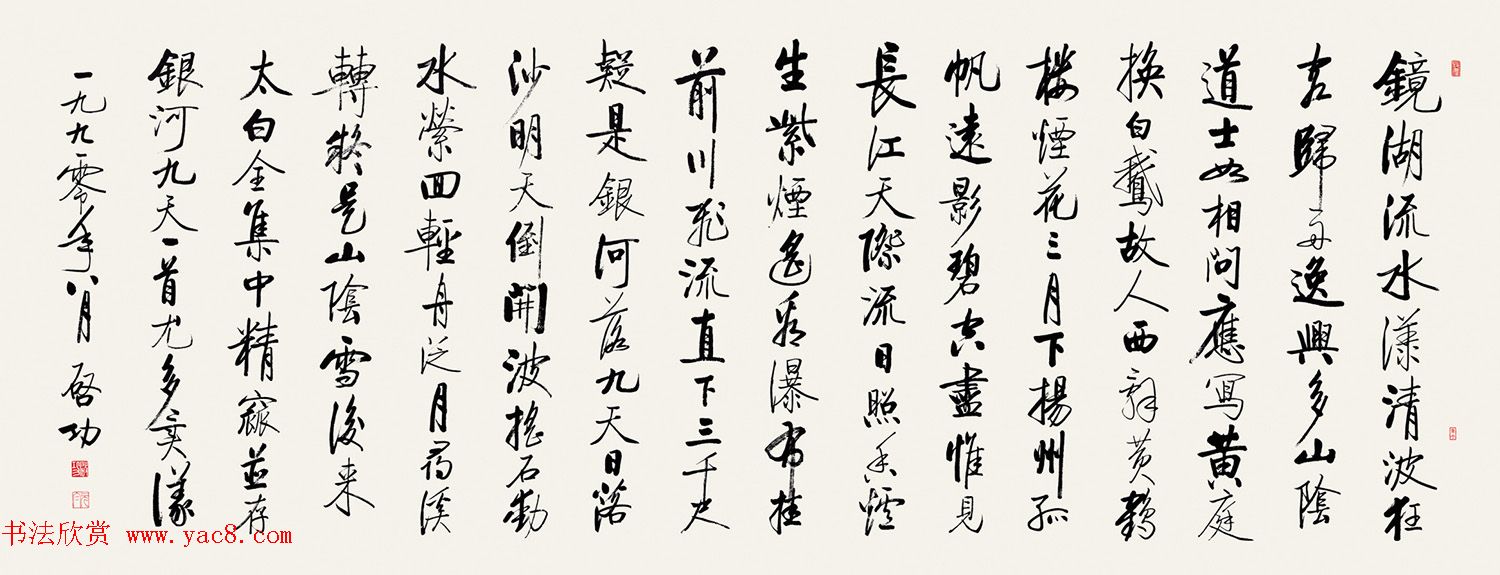 鏡湖流水漾清波狂
客歸舟逸興多山陰
道士如相問應寫黄庭
換白鵝故人西辭黄鶴
樓煙花三月下揚州孤
帆遠影碧空盡惟見
長江天際流日照香爐
生紫煙遙看瀑布挂
前川飛流直下三千尺
疑是銀河落九天日落
沙明天倒開波搖石動
水縈回輕舟泛月尋溪
轉疑是山陰雪後来
太白全集中精窳並存
銀河九天一首尤多
一九九零年八月 啓功
书法欣赏 www.yac8.com